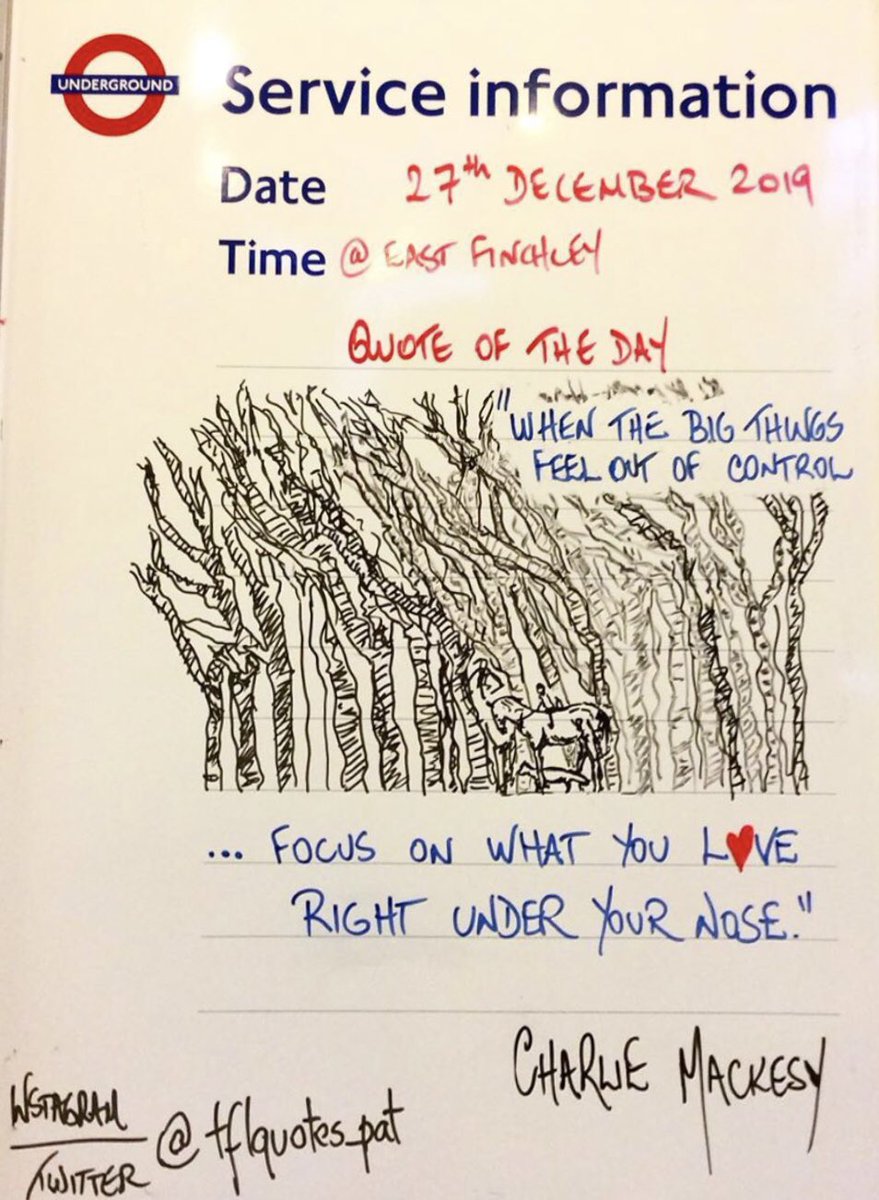 UNDERGROUND
Service information
Date 27th DECEMBER 2019
Time @ EAST FINCHLEY
QUOTE OF THE DAY
"WHEN THE BIG THINGS
FEEL OUT OF CONTROL
... FOCUS ON WHAT YOU L♥VE
RIGHT UNDER YOUR NOSE."
CHARLIE MACKESY
INSTAGRAM
TWITTER
@tflquotes_pat